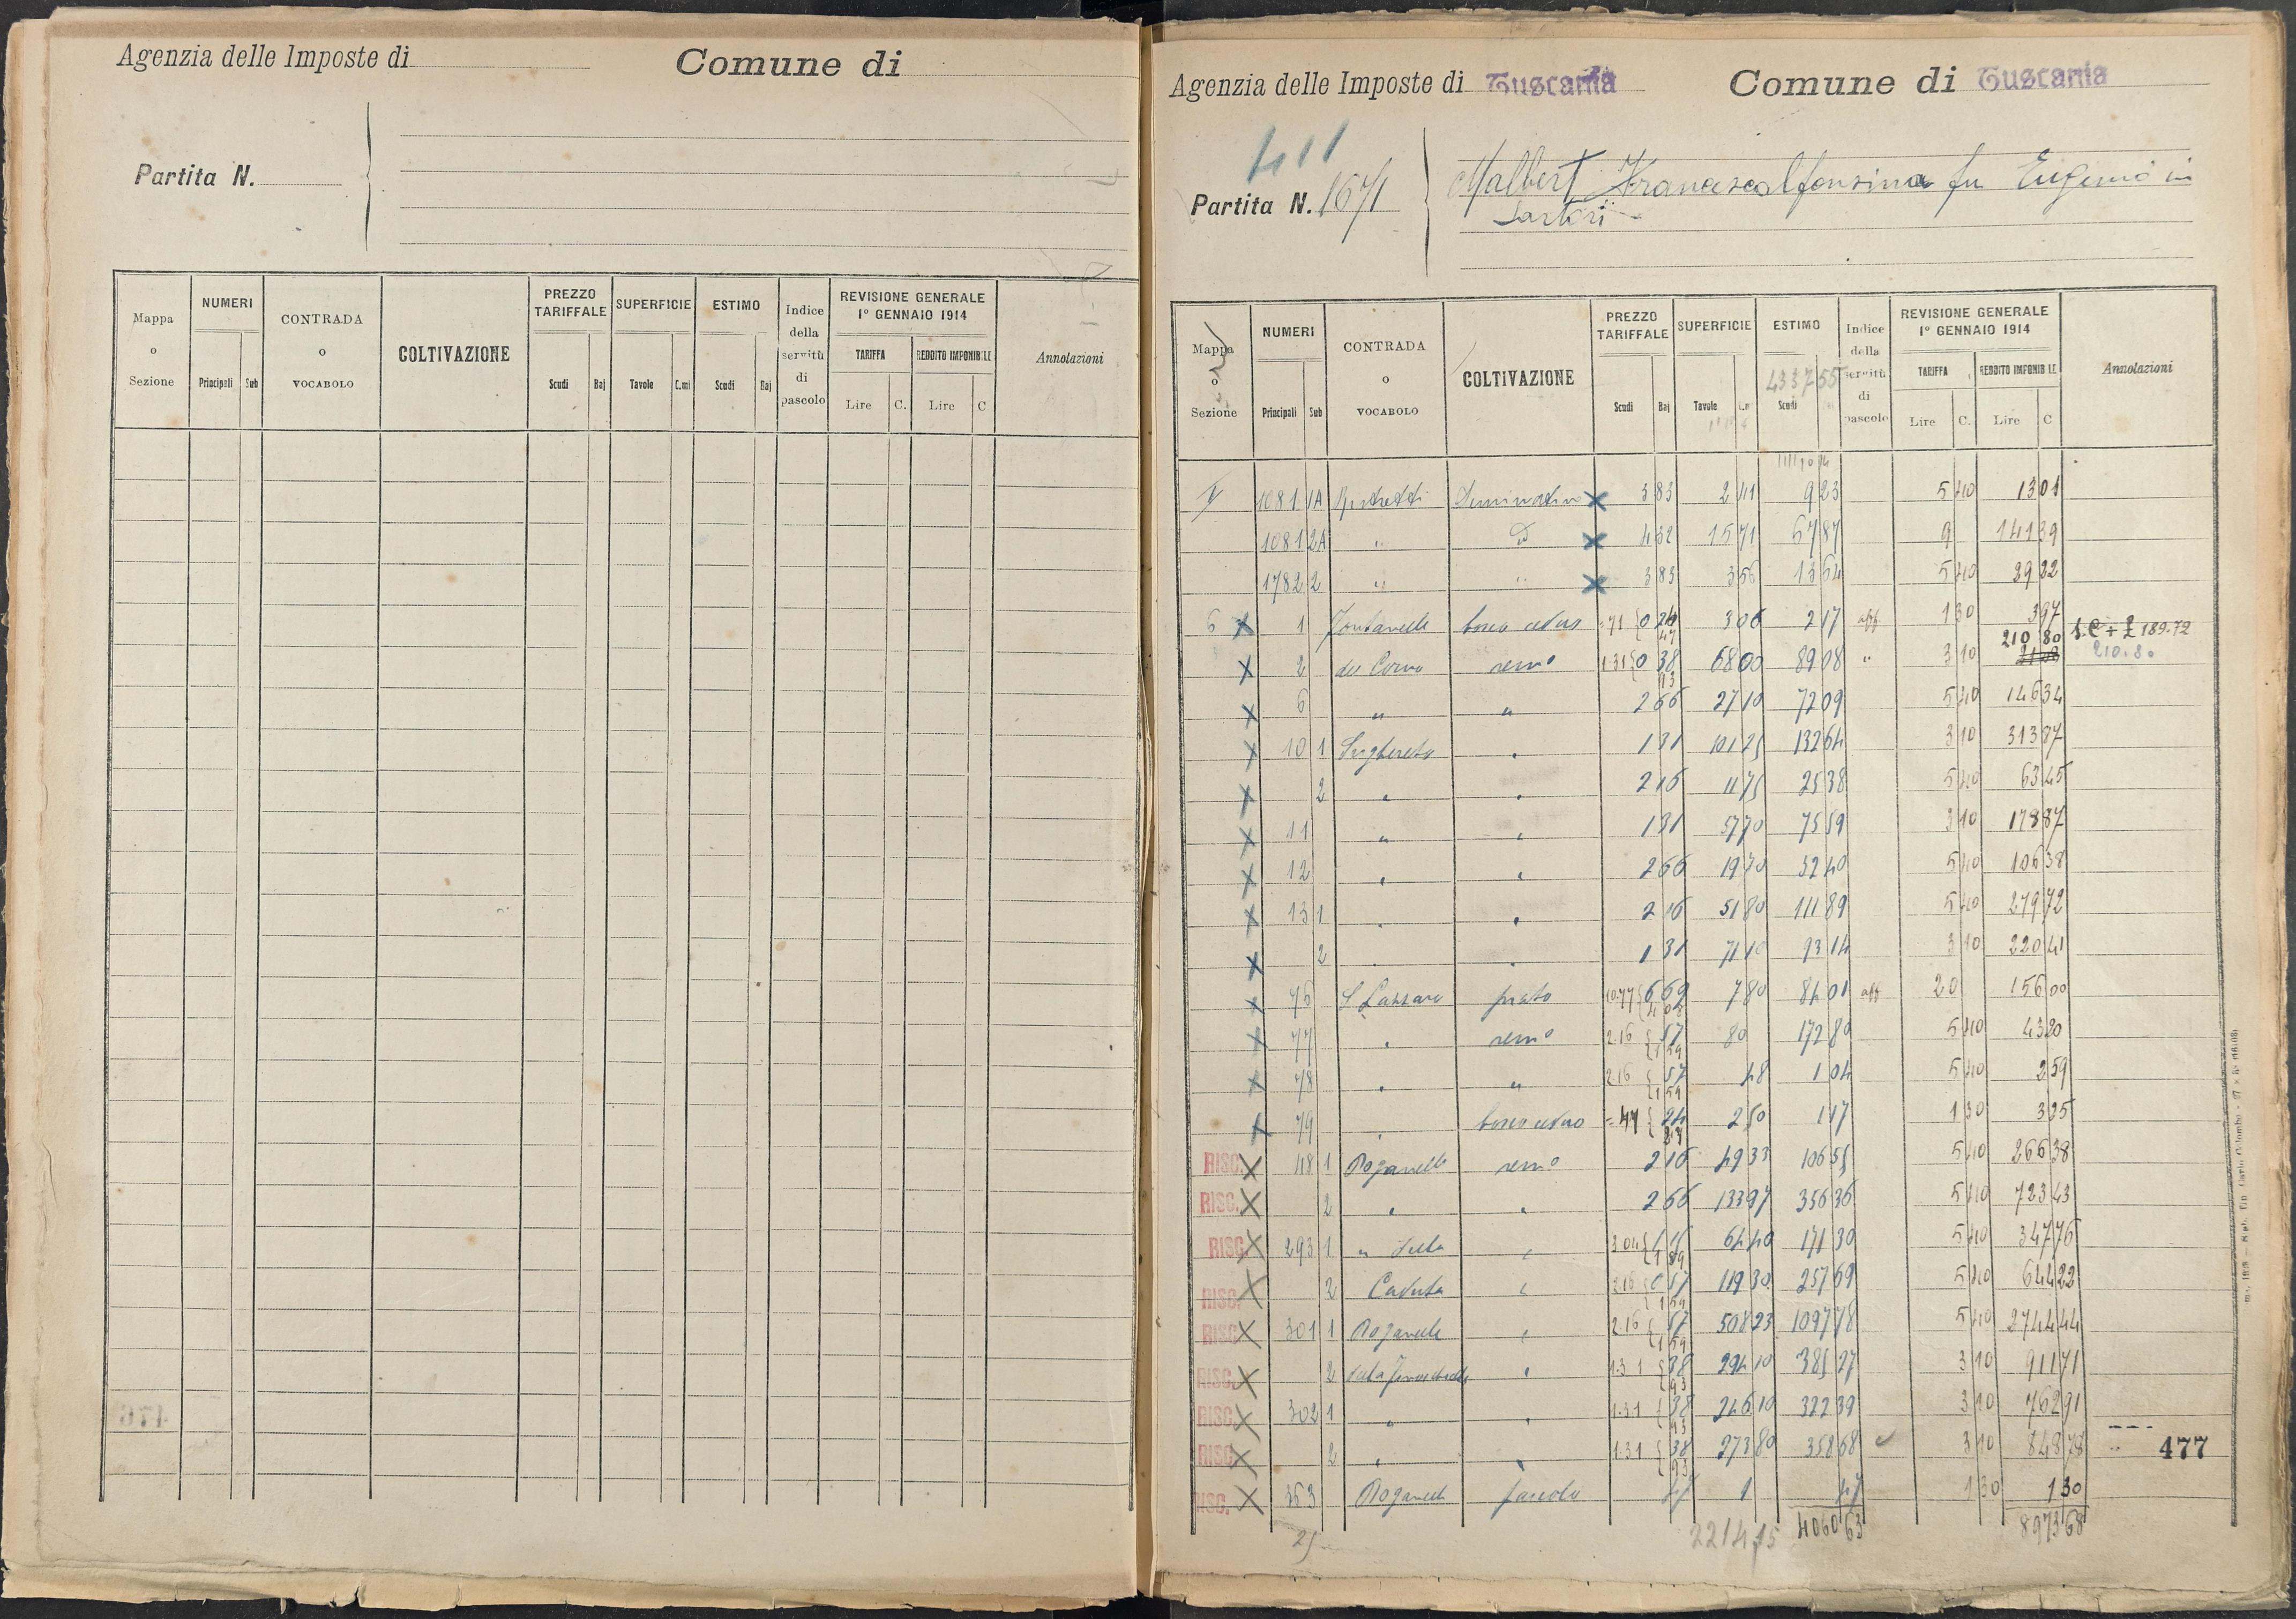 Agenzia delle Imposte di
Comune di
Partita N.
Mappa o Sezione
NUMERI
Principali Sub
CONTRADA o VOCABOLO
COLTIVAZIONE
PREZZO TARIFFALE
Scudi Baj
SUPERFICIE
Tavole C.mi
ESTIMO
Scudi Baj
Indice della servitù di pascolo
REVISIONE GENERALE
1° GENNAIO 1914
TARIFFA
Lire C.
REDDITO IMPONIBILE
Lire C
Annotazioni
Agenzia delle Imposte di Tuscania
Comune di Tuscania
411
Partita N. 1671
Malbert Francescalfonsina fu Eugenio in
Sartori
Mappa o Sezione
NUMERI
Principali Sub
CONTRADA o VOCABOLO
COLTIVAZIONE
PREZZO TARIFFALE
Scudi Baj
SUPERFICIE
Tavole
ESTIMO
4337 55
Scudi
Indice della servitù di pascolo
REVISIONE GENERALE
1° GENNAIO 1914
TARIFFA
Lire C.
REDDITO IMPONIBILE
Lire C
Annotazioni
V 1081 1A X 3 83 2 41 9 23 5 40 13 01
1081 2A " X 4 32 15 71 67 87 9 141 39
1782 2 " " X 3 83 3 56 13 64 5 40
6 X 1 bosco ceduo 71 0 24 47 3 06 2 17 aff 1 30 3 97
X 2 semo 1 31 0 38 93 68 00 89 08 " 3 10 210 80 189.72
210.80
X 6 " " 2 66 27 10 72 09 5 40 146 34
X 10 1 Sughereto 1 31 101 25 132 64 3 10 313 87
X 2 2 16 11 75 25 38 5 40 63 45
X 11 " 1 31 57 70 75 59 3 10 178 87
X 12 2 66 19 70 52 40 5 40 106 38
X 13 1 2 16 51 80 111 89 5 40 279 72
X 2 1 31 71 10 93 14 3 10 220 41
X 76 S Lazzaro prato 10.77 6 69 4 08 7 80 84 01 aff 20 156 00
X 77 semo 2.16 57 1 59 80 172 80 5 40 43 20
X 78 " 2.16 57 1 59 48 1 04 5 40 2 59
X 79 bosco ceduo 47 24 2 50 1 17 1 30 3 25
RISC. X 48 1 Roganelle semo 2 16 49 33 106 55 5 40 266 38
RISC. X 2 2 66 133 97 356 36 5 40 723 43
RISC. X 293 1 64 40 171 30 5 40 347 76
RISC. X 2 Caduta 2.16 57 1 59 119 30 257 69 5 40 644 22
RISC. X 301 1 Roganelle 2.16 57 1 59 508 23 1097 78 5 40 2744 44
RISC. X 2 1.31 38 93 294 10 385 27 3 10 911 71
RISC. X 302 1 1.31 38 93 246 10 322 39 3 10 762 91
RISC. X 2 1.31 38 93 273 80 358 68 3 10 848 78
477
RISC. X 353 Roganelle pascolo 47 1 47 1 30 1 30
25
2214 15 4060 63 8973 68